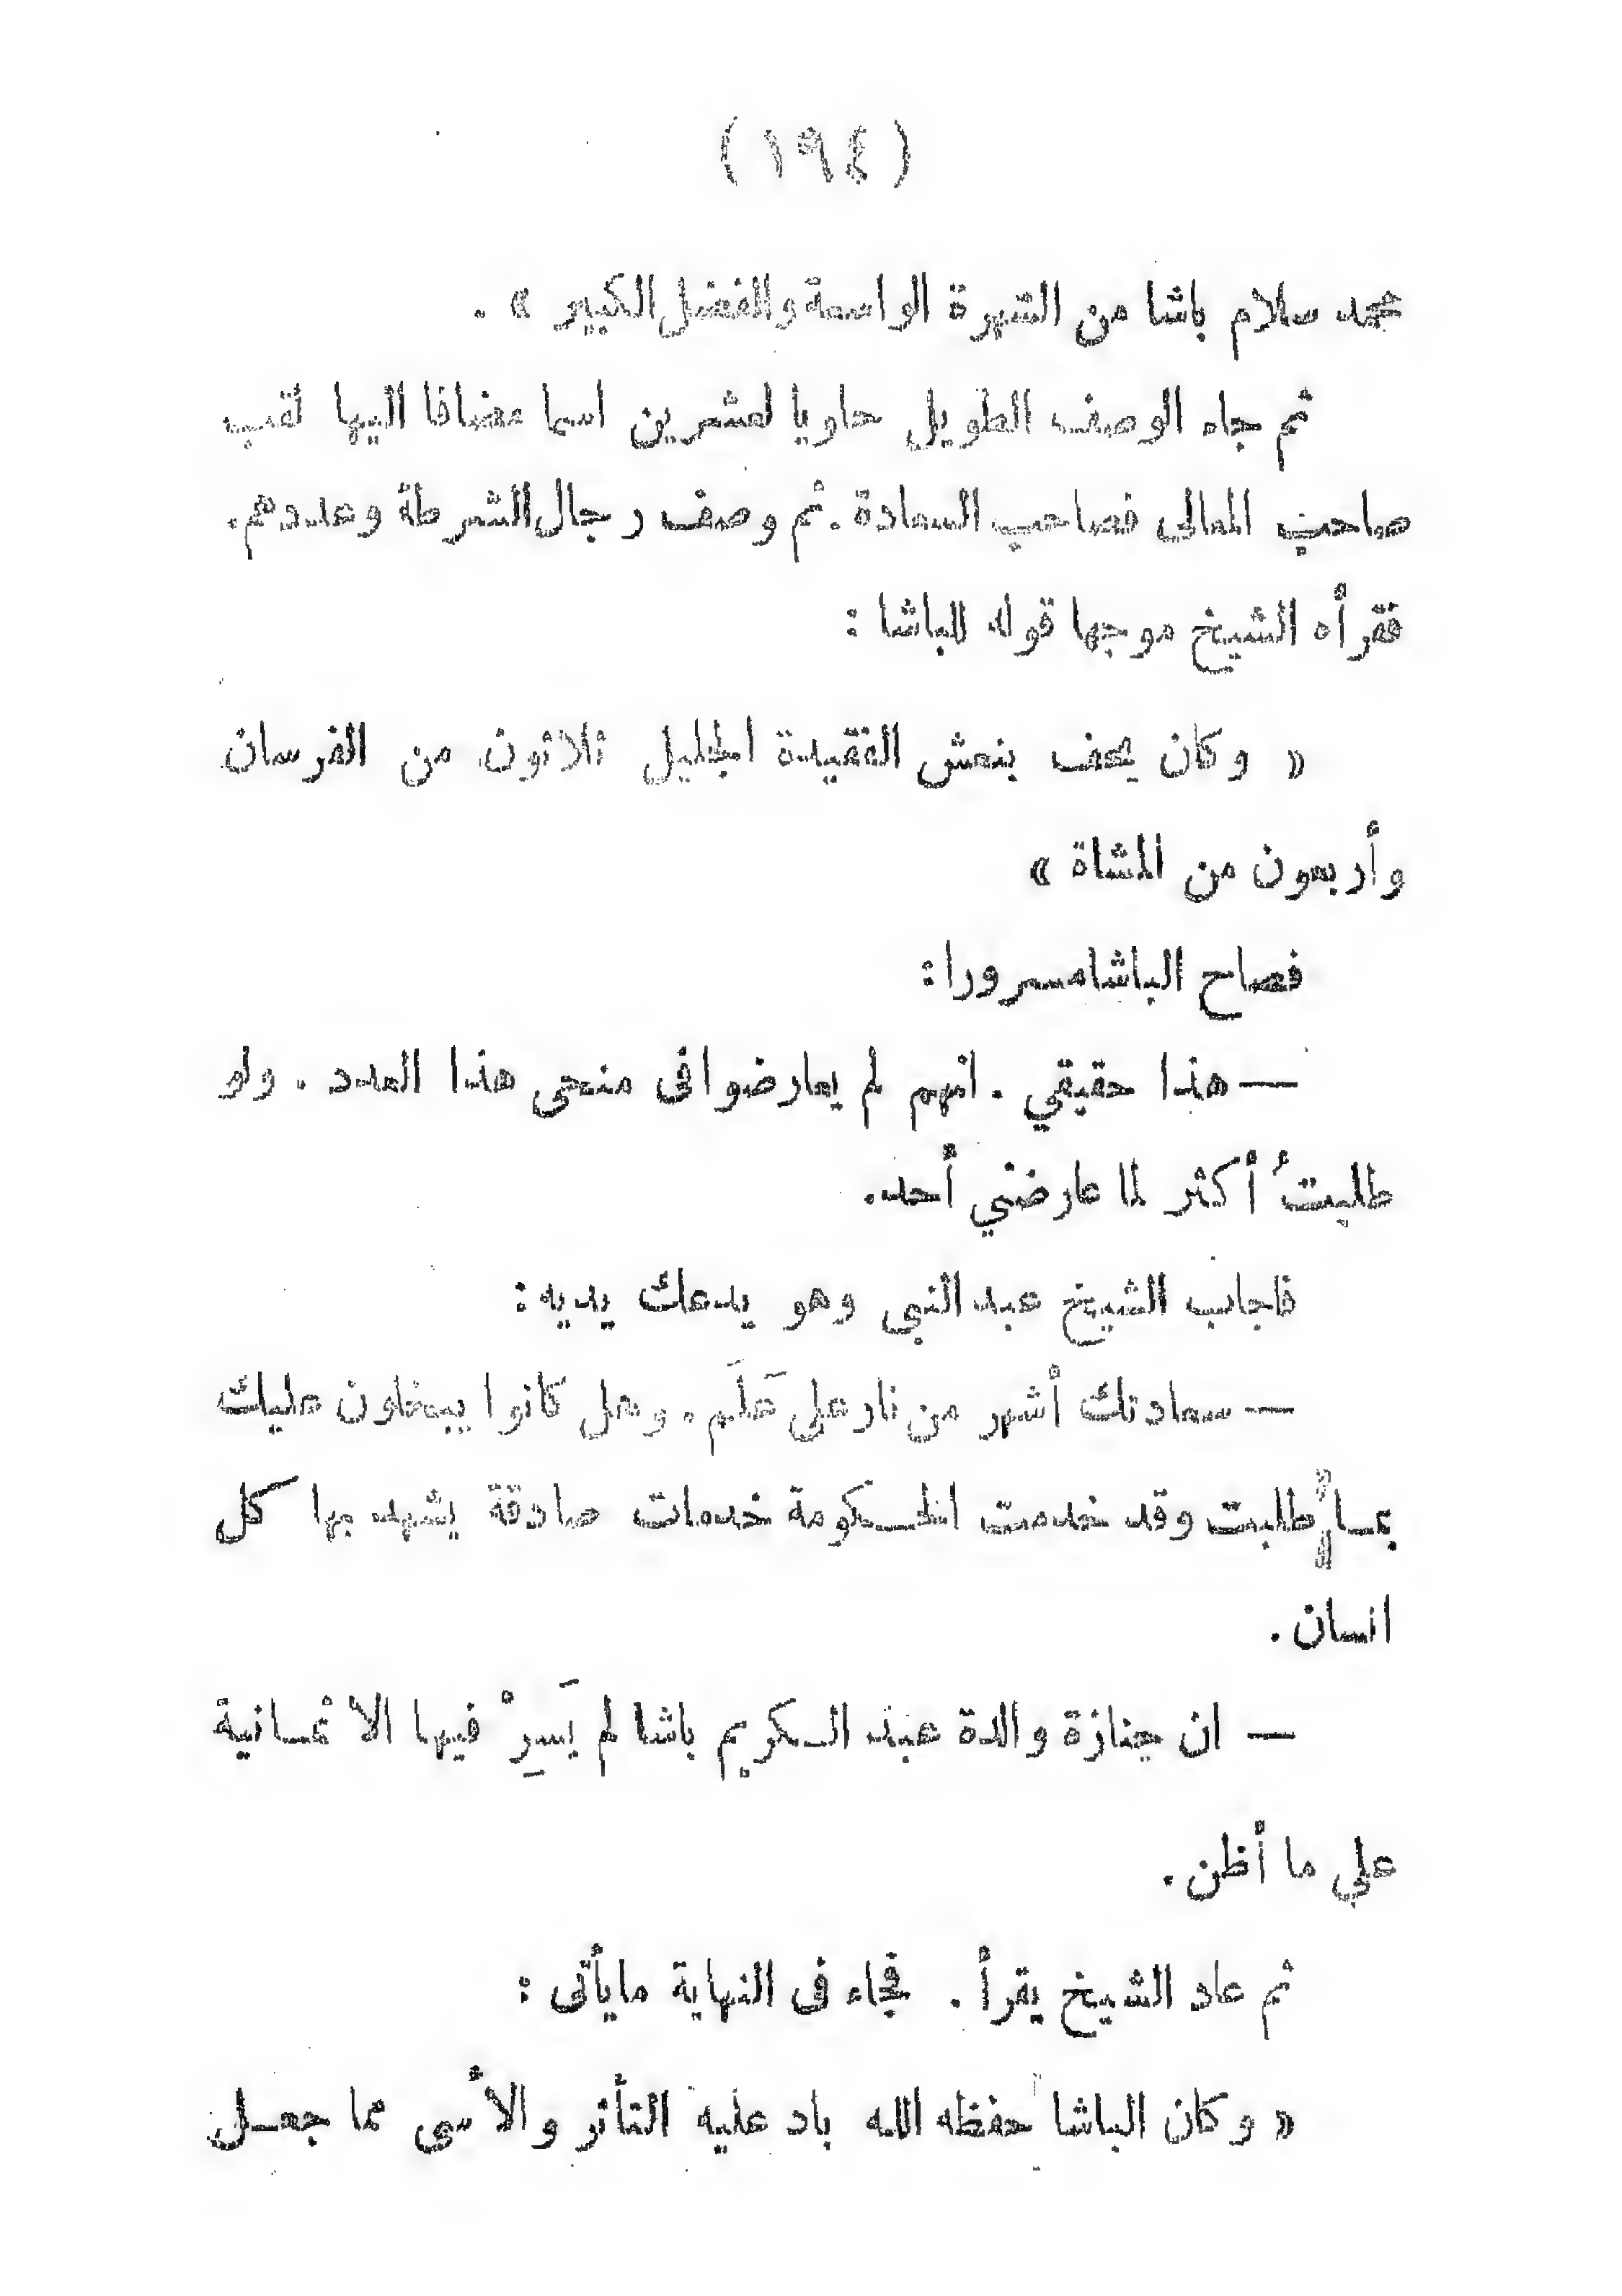 (١٩٤)
محمد سلام باشا من الشهرة الواسعة والفضل الكبير » .
ثم جاء الوصف الطويل حاويا لعشرين اسما مضافا اليها لقب
صاحب المعالى فصاحب السعادة . ثم وصف رجال الشرطة وعددهم.
فقرأه الشيخ موجها قوله للباشا :
« وكان يحف بنعش الفقيدة الجليل ثلاثون من الفرسان
وأربعون من المشاة »
فصاح الباشا مسرورا :
— هذا حقيقي . انهم لم يعارضوا فى منحى هذا العدد . ولو
طلبتُ أكثر لما عارضني أحد.
فاجاب الشيخ عبد النبى وهو يدعك يديه :
— سعادتك أشهر من نار على عَلَم . وهل كانوا يبخلون عليك
بما طلبت وقد خدمت الحكومة خدمات صادقة يشهد بها كل
انسان .
— ان جنازة والدة عبد الكريم باشا لم يَسِرْ فيها الا ثمانية
علي ما أظن .
ثم عاد الشيخ يقرأ . فجاء فى النهاية مايأتى :
« وكان الباشا حفظه الله باد عليه التأثر والأسى مما جعل